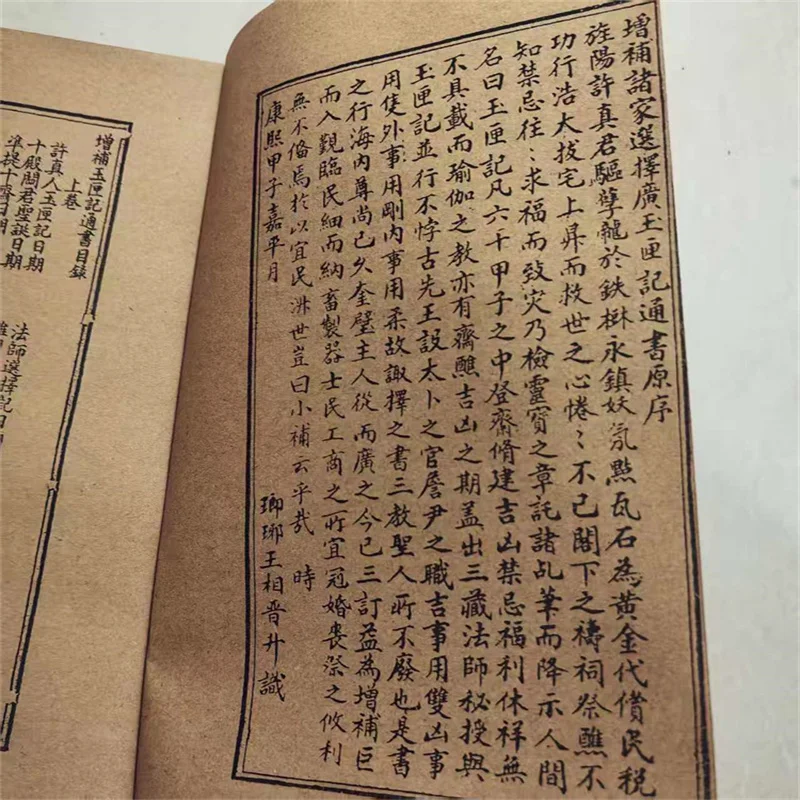 增補諸家選擇廣玉匣記通書原序
旌陽許真君驅孽龍於鉄樹永鎮妖氛點瓦石為黃金代償民稅
功行浩大拔宅上昇而救世之心惓〻不已閣下之禱祠祭醮不
知禁忌往〻求福而致灾乃檢靈寶之章託諸乩筆而降示人間
名曰玉匣記凡六十甲子之中登齋脩建吉凶禁忌福利休祥無
不具載而瑜伽之教亦有齋醮吉凶之期盖出三藏法師秘授與
玉匣記並行不悖古先王設太卜之官詹尹之職吉事用雙凶事
用隻外事用剛內事用柔故諏擇之書三教聖人所不廢也是書
之行海內尊尚已久奎璧主人從而廣之今已三訂益為增補巨
而入覲臨民細而納畜製器士民工商之所宜冠婚喪祭之攸利
無不脩焉於以宜民淑世豈曰小補云乎哉 時
康熙甲子嘉平月
瑯琊王相晉升識
增補玉匣記通書目錄
上卷
許真人玉匣記日期
十殿閻君聖誕日期
準提十齋日期
法師選擇記日